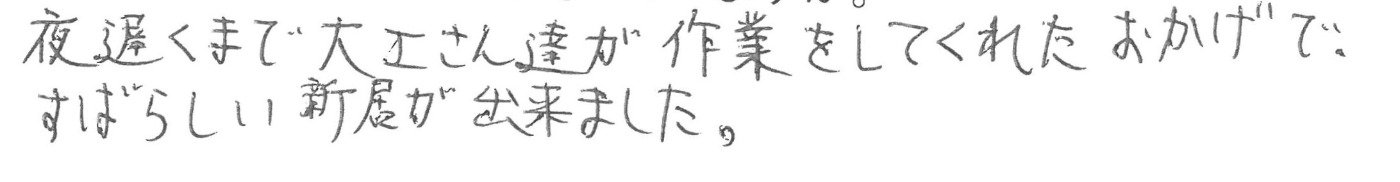 夜遅くまで大工さん達が作業をしてくれたおかげで、
すばらしい新居が出来ました。